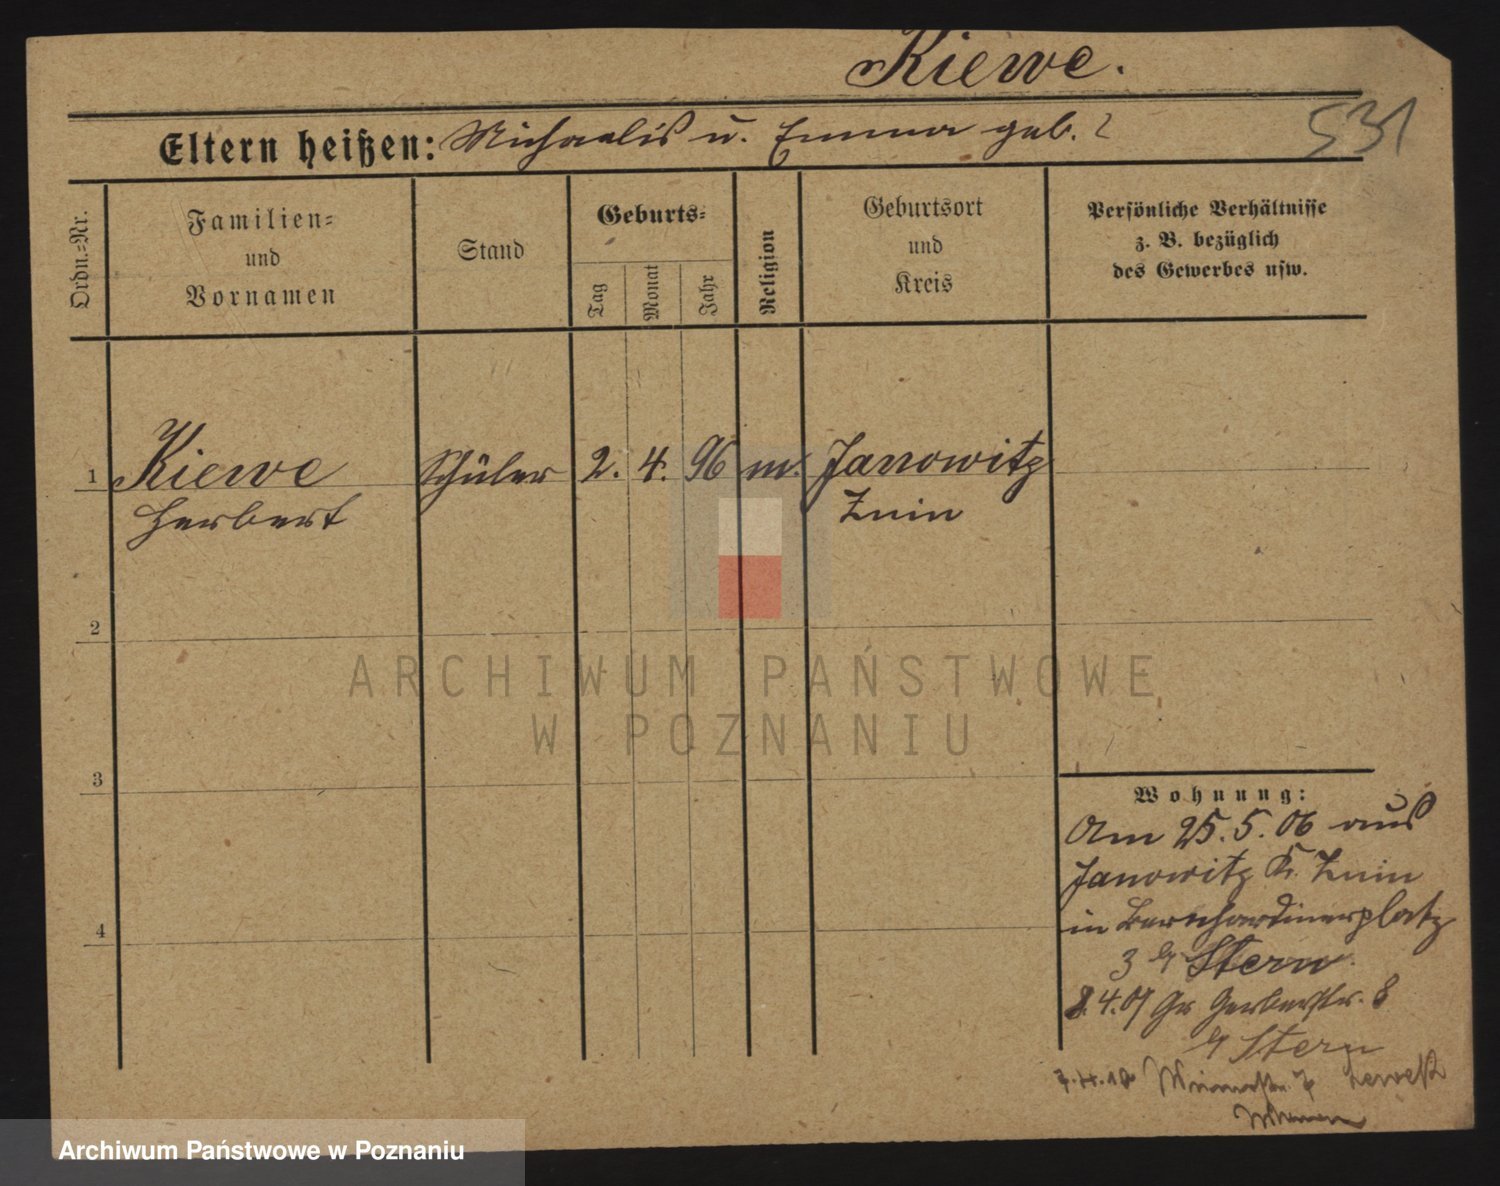 Kiewe.
531
Eltern heißen: Michaelis u. Emma geb. ?
Ordn.-Nr.
Familien-
und
Vornamen
Stand
Geburts-
Tag
Monat
Jahr
Religion
Geburtsort
und
Kreis
Persönliche Verhältnisse
z. B. bezüglich
des Gewerbes usw.
1 Kiewe Schüler 2. 4. 96 m. Janowitz
Herbert Znin
2
ARCHIWUM PAŃSTWOWE
W POZNANIU
3
Wohnung:
Am 25.5.06 aus
Janowitz Kr. Znin
in Bernhardinerplatz
3 b/ Stern
8.4.07 Gr Gerberstr. 8
b/ Stern
4
Archiwum Państwowe w Poznaniu